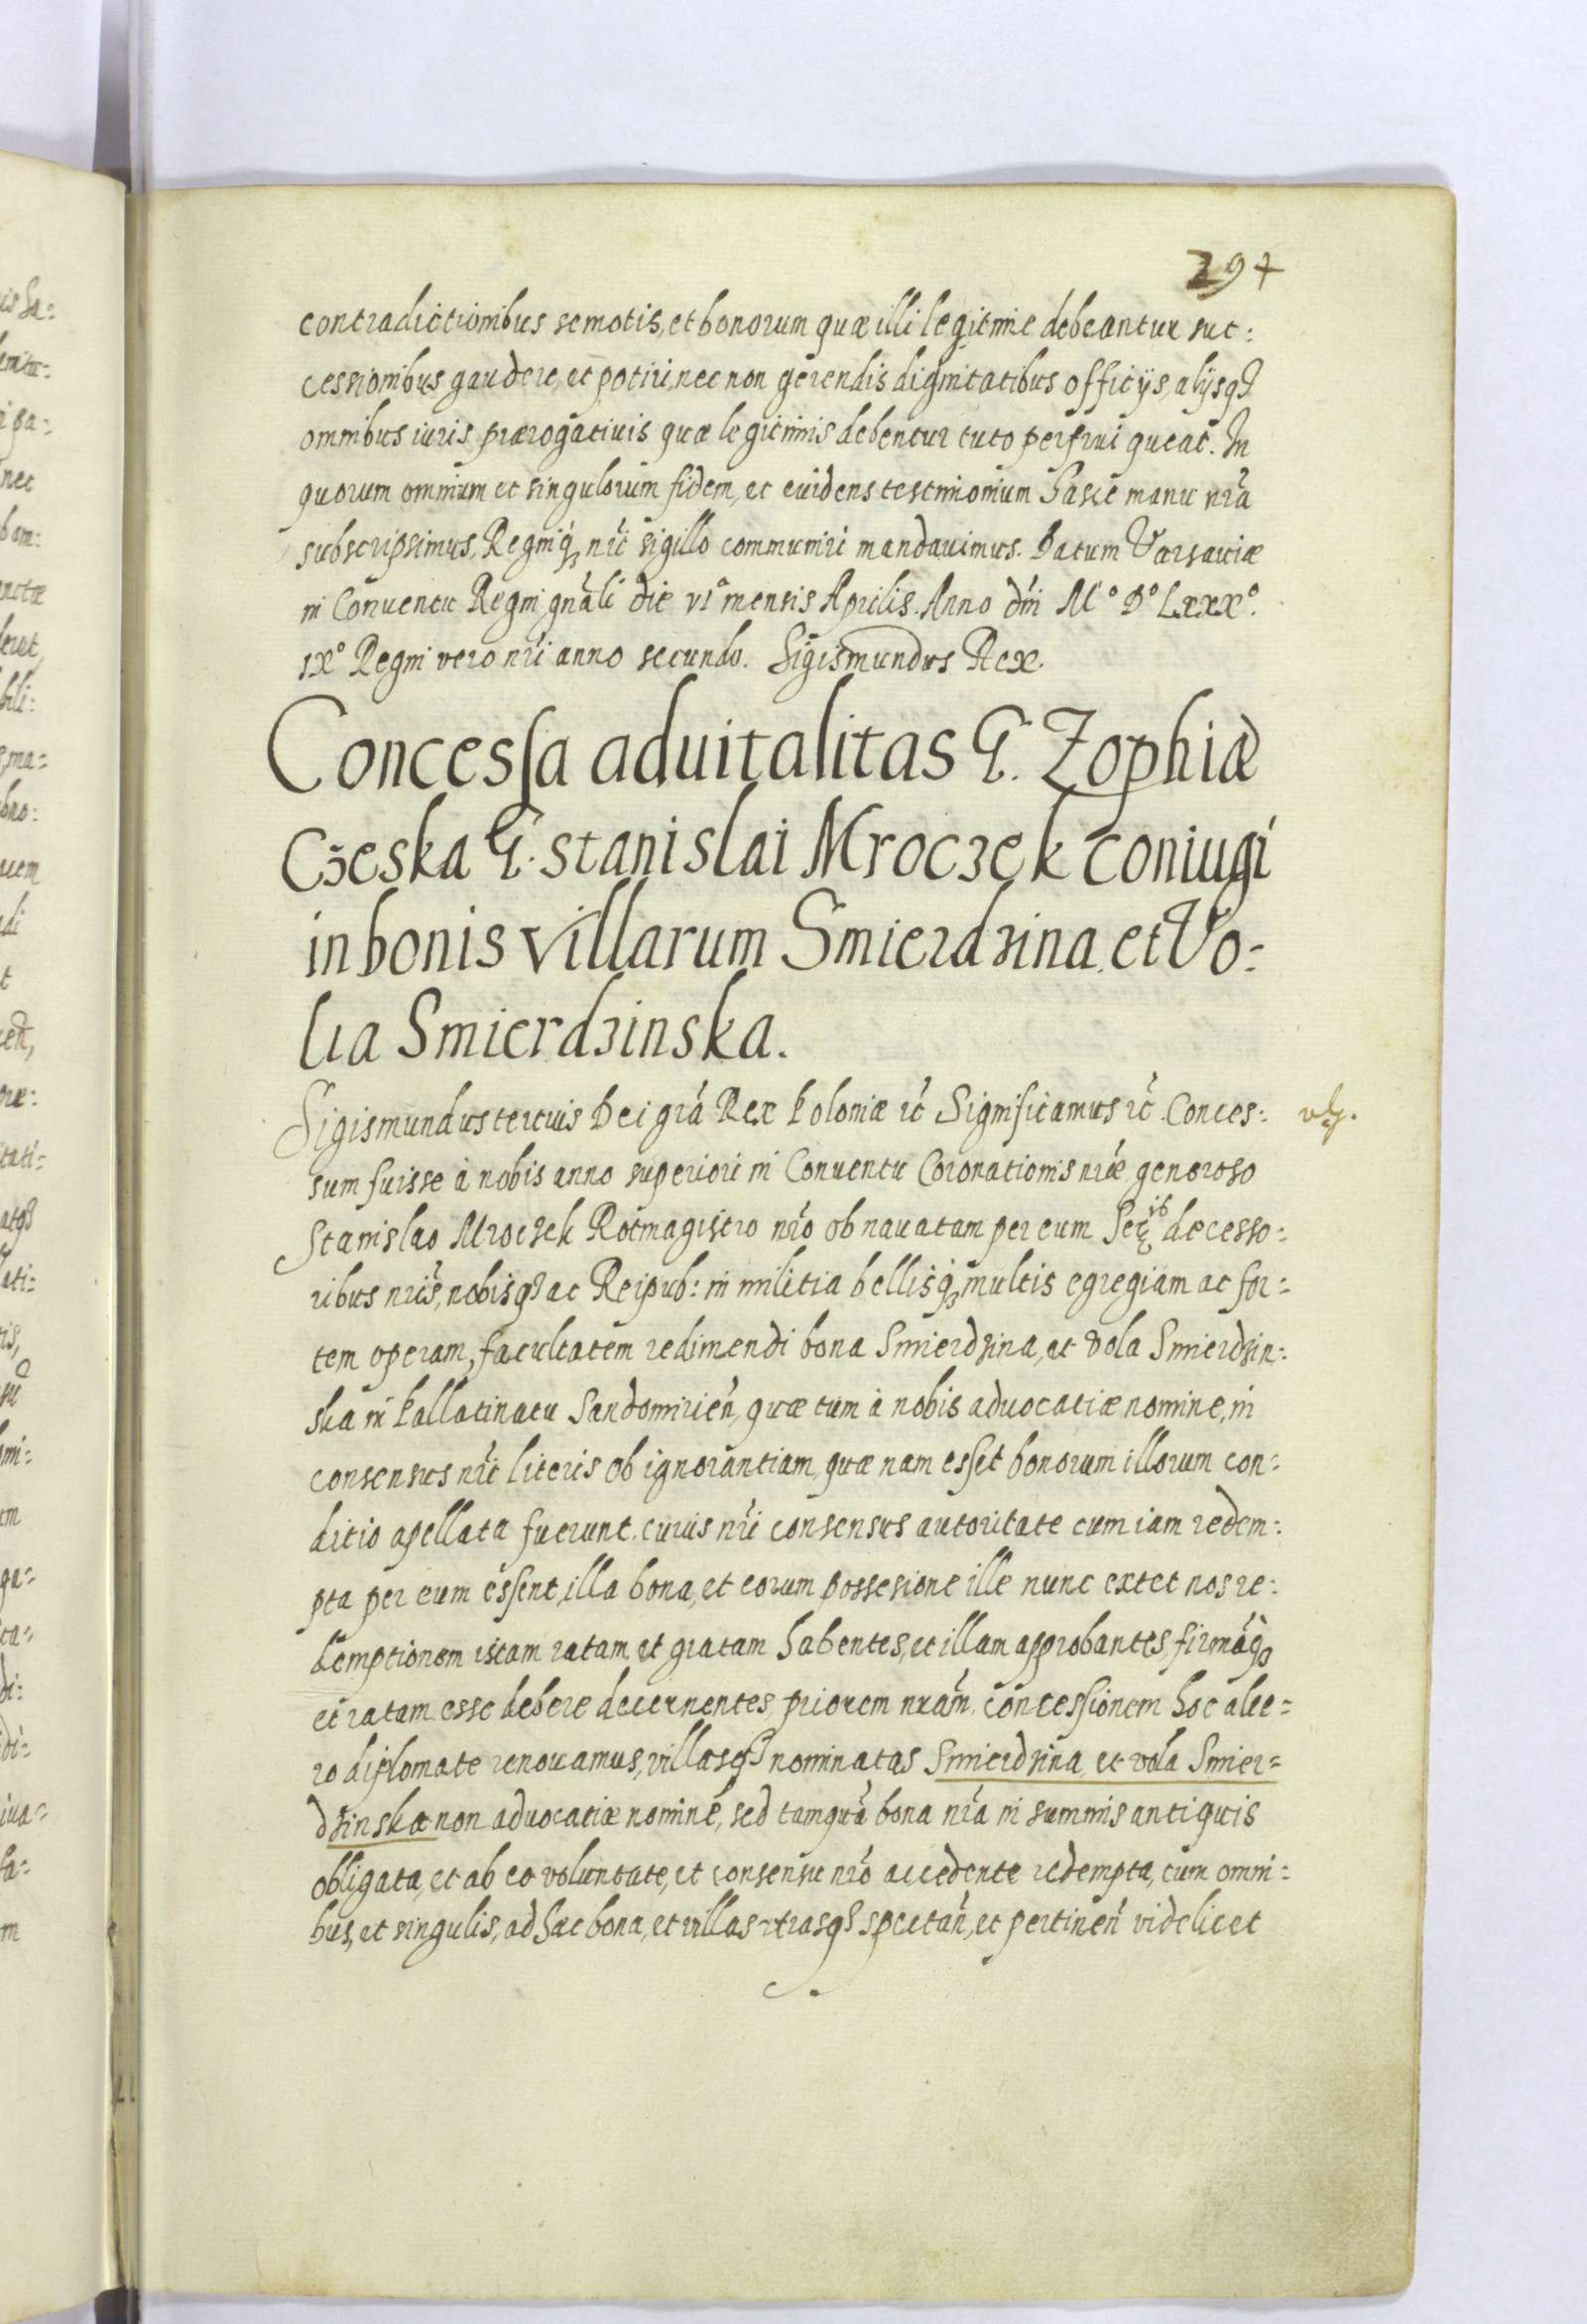 297
contradictionibus semotis, et bonorum quæ illi legitime debeantur suc:
cessionibus gaudere, et potiri, nec non gerendis dignitatibus officijs, alijsq3
omnibus iuris prærogatiuis quæ legitimis debentur tuto perfrui queat. In
quorum omnium et singulorum fidem, et euidens testimonium hasce manu nrã
subscripsimus, Regniq3 nrĩ sigillo communiri mandauimus. Datum Varsauiæ
in Conuentu Regni gnãli die VI° mensis Aprilis. Anno dñi M° D° Lxxx°.
IX° Regni vero nrĩ anno secundo. Sigismundus Rex.
Concessa aduitalitas G. Zophiæ
Czeska G. Stanislai Mroczek coniugi
in bonis villarum Smierdzina, et Vo:
lia Smierdzinska.
Sigismundus tertius Dei grã Rex Poloniæ rc̃ Significamus rc̃. Conces:
sum fuisse à nobis anno superiori in Conuentu Coronationis nrǽ generoso
Stanislao Mroczek Rotmagistro nrõ ob nauatam per eum Ser ib decesso:
ribus nrĩs, nobisq3 ac Reipub: in militia bellisq3 multis egregiam ac for:
tem operam, facultatem redimendi bona Smierdzina, et Vola Smierdzin:
ska in Pallatinatu Sandomirieñ, quæ tum à nobis aduocatiæ nomine, in
consensus nrĩ literis ob ignorantiam, quæ nam esset bonorum illorum con:
ditio apellata fuerunt. cuius nrĩ consensus autoritate cum iam redem:
pta per eum essent, illa bona, et eorum possesione ille nunc extet nos re:
demptionem istam ratam, et gratam habentes, et illam approbantes, firmãq3
et ratam esse debere decernentes, priorem nrãm concessionem hoc alte:
ro diplomate renouamus, villasq3 nominatas Smierdzina, et vola Smier:
dzinska non aduocatiæ nomine, sed tamquã bona nrã in summis antiquis
obligata, et ab eo voluntate, et consensu nrõ accedente redempta, cum omni:
bus, et singulis, ad hæc bona, et villas utrasq3 spectañ, et pertineñ videlicet